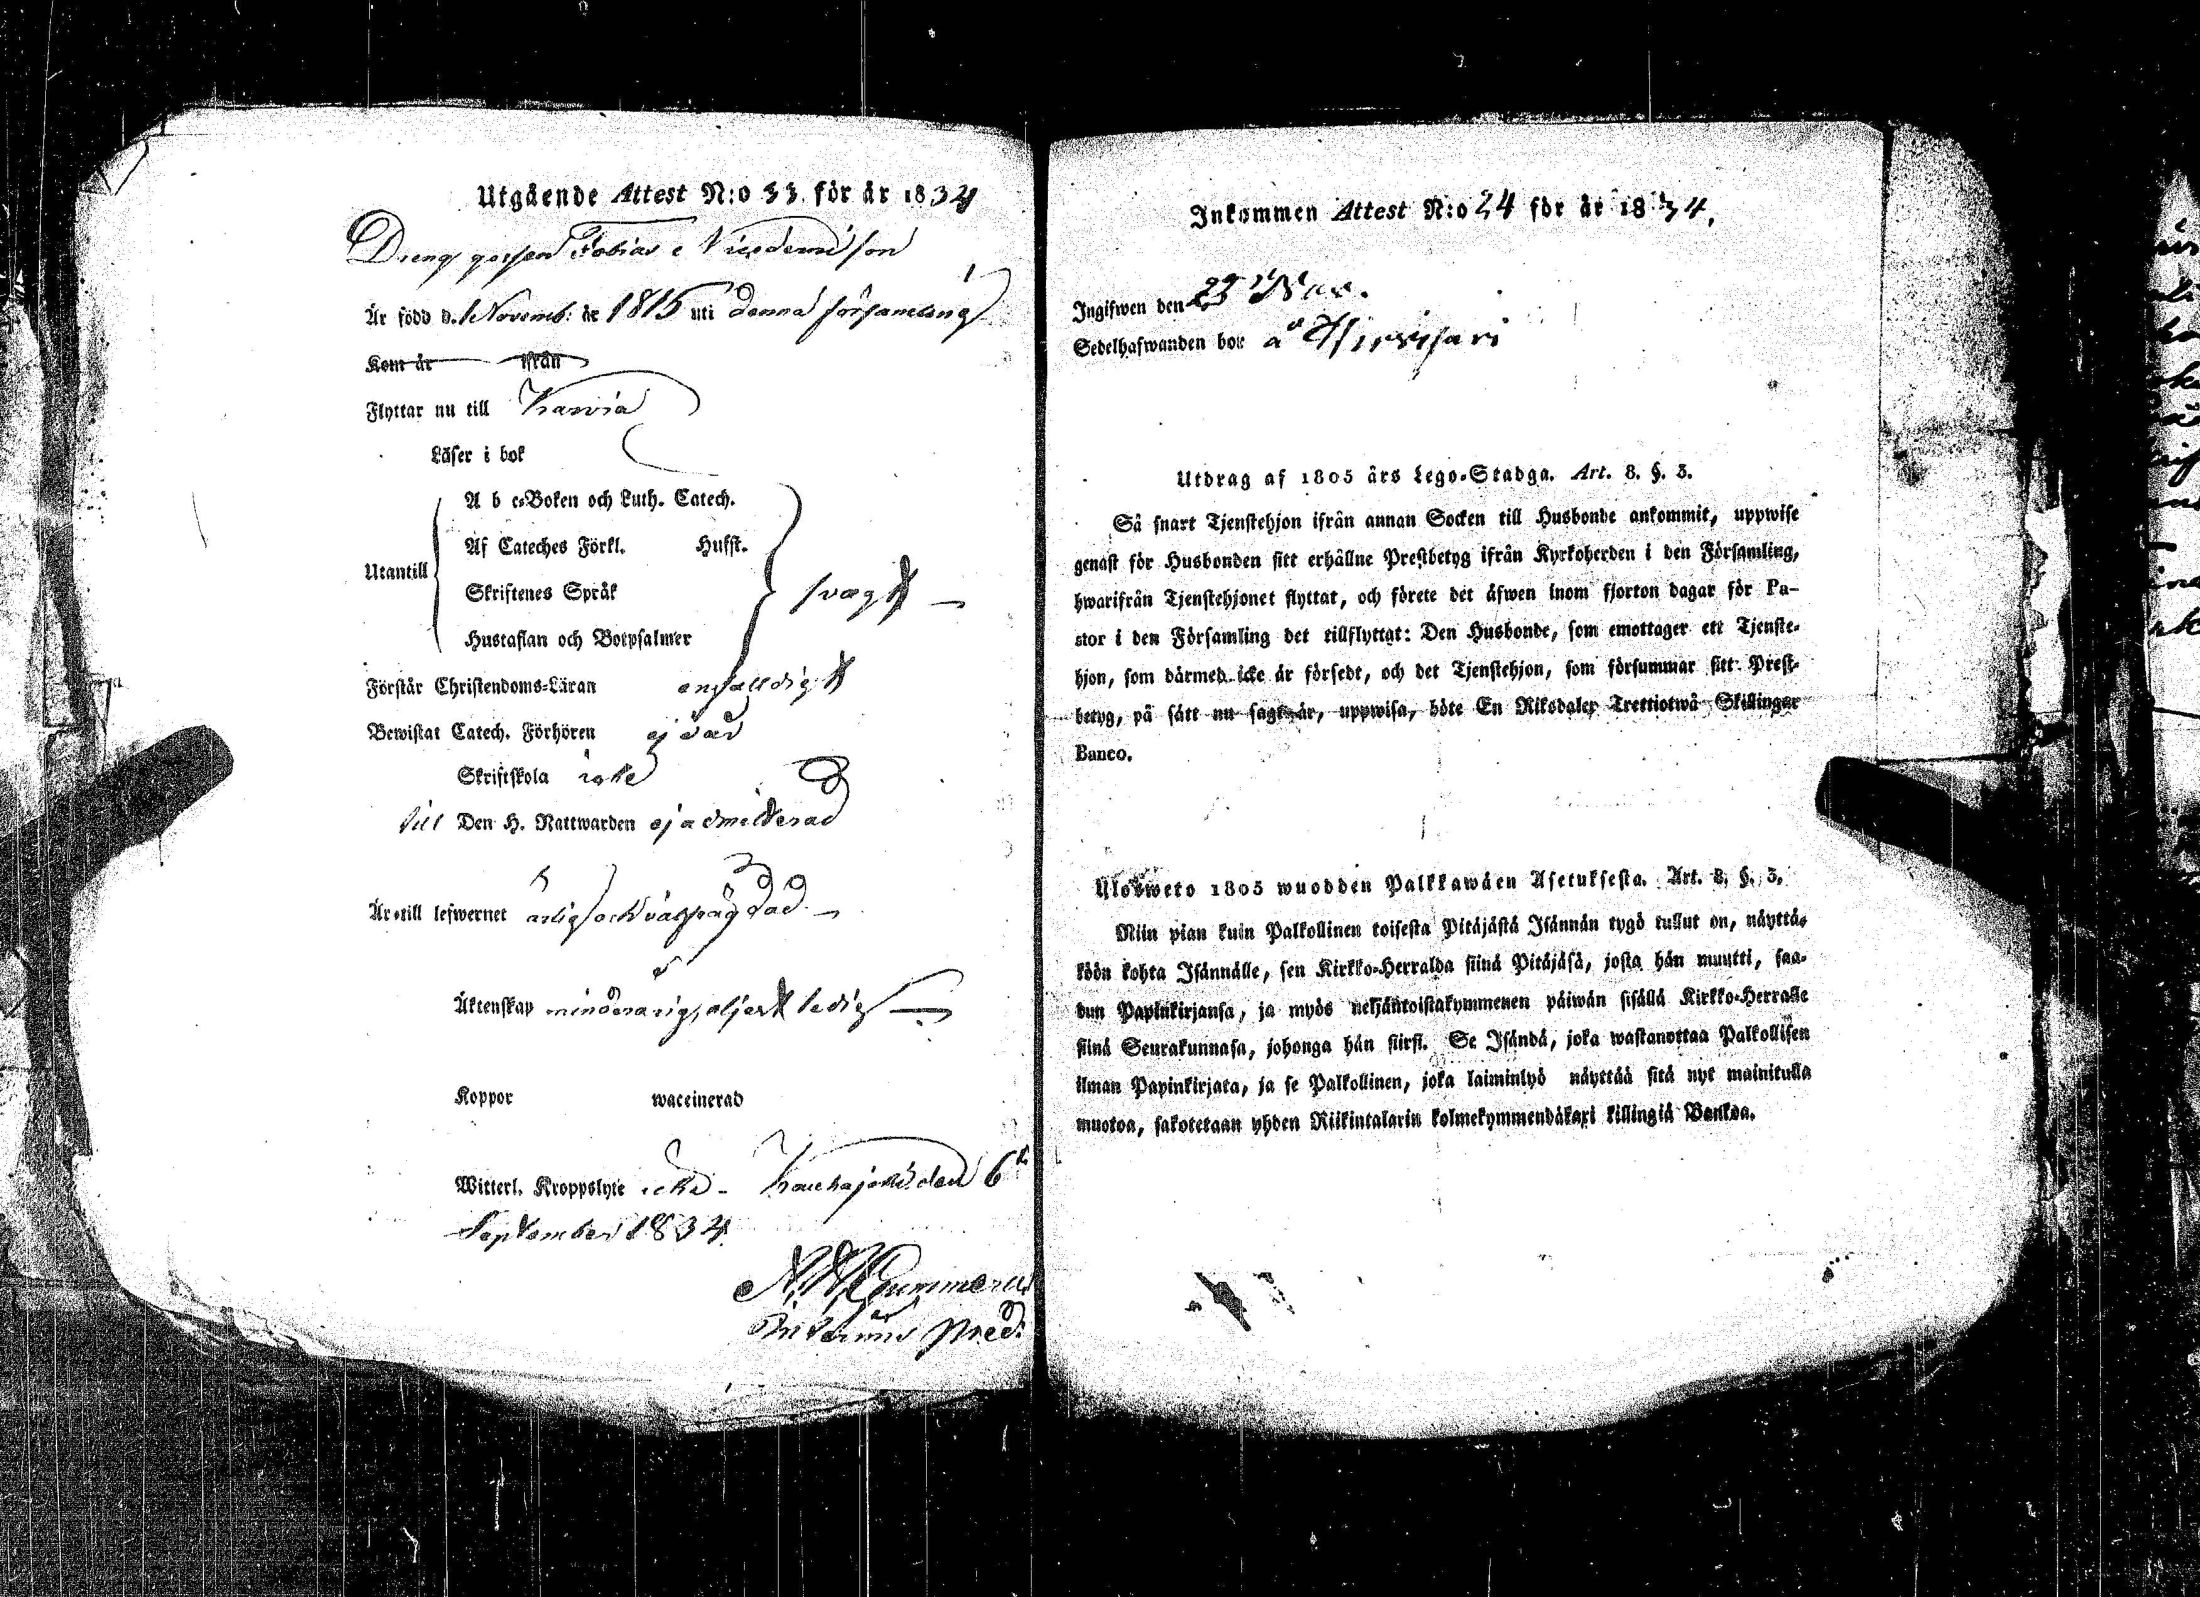 Utgående Attest N:o 33. för år 1834
Drenggossen Tobias Nicodemison
Är född d. 1 Novemb: år 1815 uti denna församling
Kom år ifrån
Flyttar nu till Karvia
Läser i bok
A b c-Boken och Luth. Catech.
Af Cateches Förkl. Husst.
Utantill
Skriftenes Språk svagt
Hustaflan och Botpsalmer
Förstår Christendoms-Läran enfalldigt
Bewistat Catech. Förhören ej
Skriftskola icke
till Den H. Nattwarden ej admitterad
Är till lefwernet ärlig och
Äktenskap minderårig, aljest ledig
Koppor waccinerad
Witterl. Kroppslyte icke - Kauhajoki den 6te
September 1834.
Gummerus
Pred:
Inkommen Attest N:o 24 för år 1834.
Ingifwen den 23 Nov.
Sedelhafwanden bor å
Utdrag af 1805 års Lego-Stadga. Art. 8. §. 3.
Så snart Tjenstehjon ifrån annan Socken till Husbonde ankommit, uppwise
genast för Husbonden sitt erhållne Prestbetyg ifrån Kyrkoherden i den Församling,
hwarifrån Tjenstehjonet flyttat, och förete det äfwen inom fjorton dagar för Pa-
stor i den Församling det tillflyttat: Den Husbonde, som emottager ett Tjenste-
hjon, som därmed icke är försedt, och det Tjenstehjon, som försummar sitt Prest-
betyg, på sätt nu sagt är, uppwisa, böte En Riksdaler Trettiotwå Skillingar
Banco.
Ulosweto 1805 wuodden Palkkawäen Asetuksesta. Art. 8. §. 3.
Niin pian kuin Palkollinen toisesta Pitäjästä Isännän tygö tullut on, näyttä-
köön kohta Isännälle, sen Kirkko-Herralda siinä Pitäjäsä, josta hän muutti, saa-
dun Papinkirjansa, ja myös neljäntoistakymmenen päiwän sisällä Kirkko-Herralle
siinä Seurakunnasa, johonga hän siirsi. Se Isändä, joka wastanottaa Palkollisen
ilman Papinkirjata, ja se Palkollinen, joka laiminlyö näyttää sitä nyt mainitulla
muotoa, sakotetaan yhden Riikintalarin kolmekymmendäkaxi killingiä Bankoa.